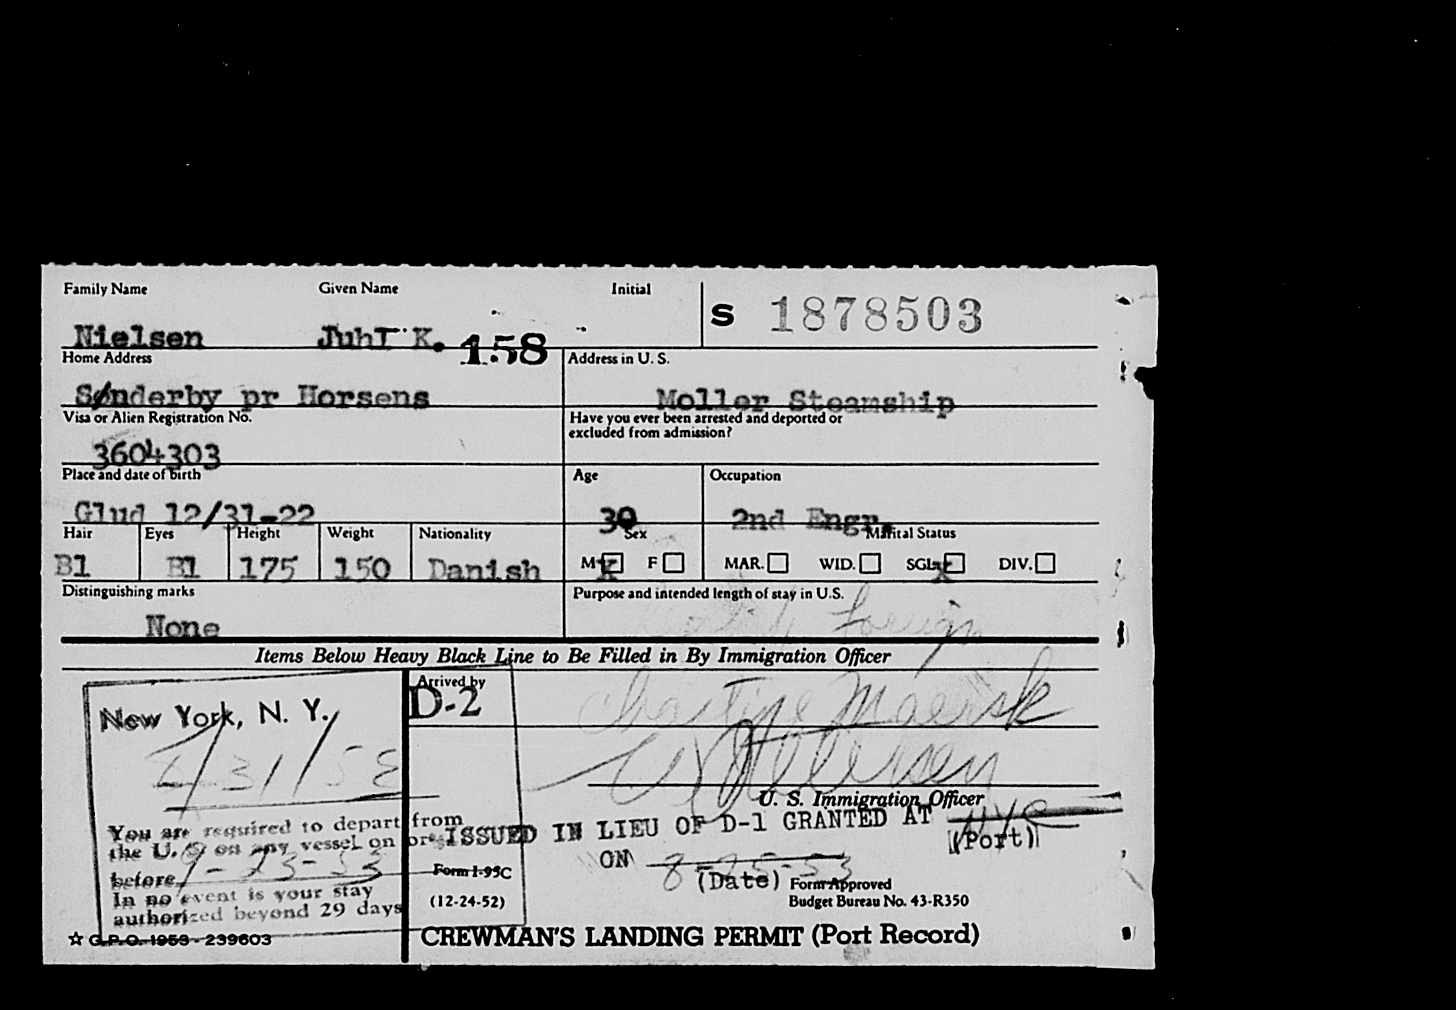 Family Name Given Name Initial
S 1878503
Nielsen Juhl K. 158
Home Address Address in U. S.
Sønderby pr Horsens Moller Steamship
Visa or Alien Registration No. Have you ever been arrested and deported or
excluded from admission?
3604303
Place and date of birth Age Occupation
Glud 12/31-22 30 2nd Engr.
Hair Eyes Height Weight Nationality Sex Marital Status
Bl Bl 175 150 Danish M X F MAR. WID. SGL. X DIV.
Distinguishing marks Purpose and intended length of stay in U.S.
None Foreign
Items Below Heavy Black Line to Be Filled in By Immigration Officer
Arrived by
D-2
Chastine Maersk
New York, N. Y.
U. S. Immigration Officer
You are required to depart from
the U. S. on any vessel on or
before 9-23-53
In no event is your stay
authorized beyond 29 days
ISSUED IN LIEU OF D-1 GRANTED AT NYC
(Port)
ON 8-25-53
(Date)
Form I-95C
(12-24-52)
Form Approved
Budget Bureau No. 43-R350
☆ G.P.O. 1953 - 239603
CREWMAN'S LANDING PERMIT (Port Record)